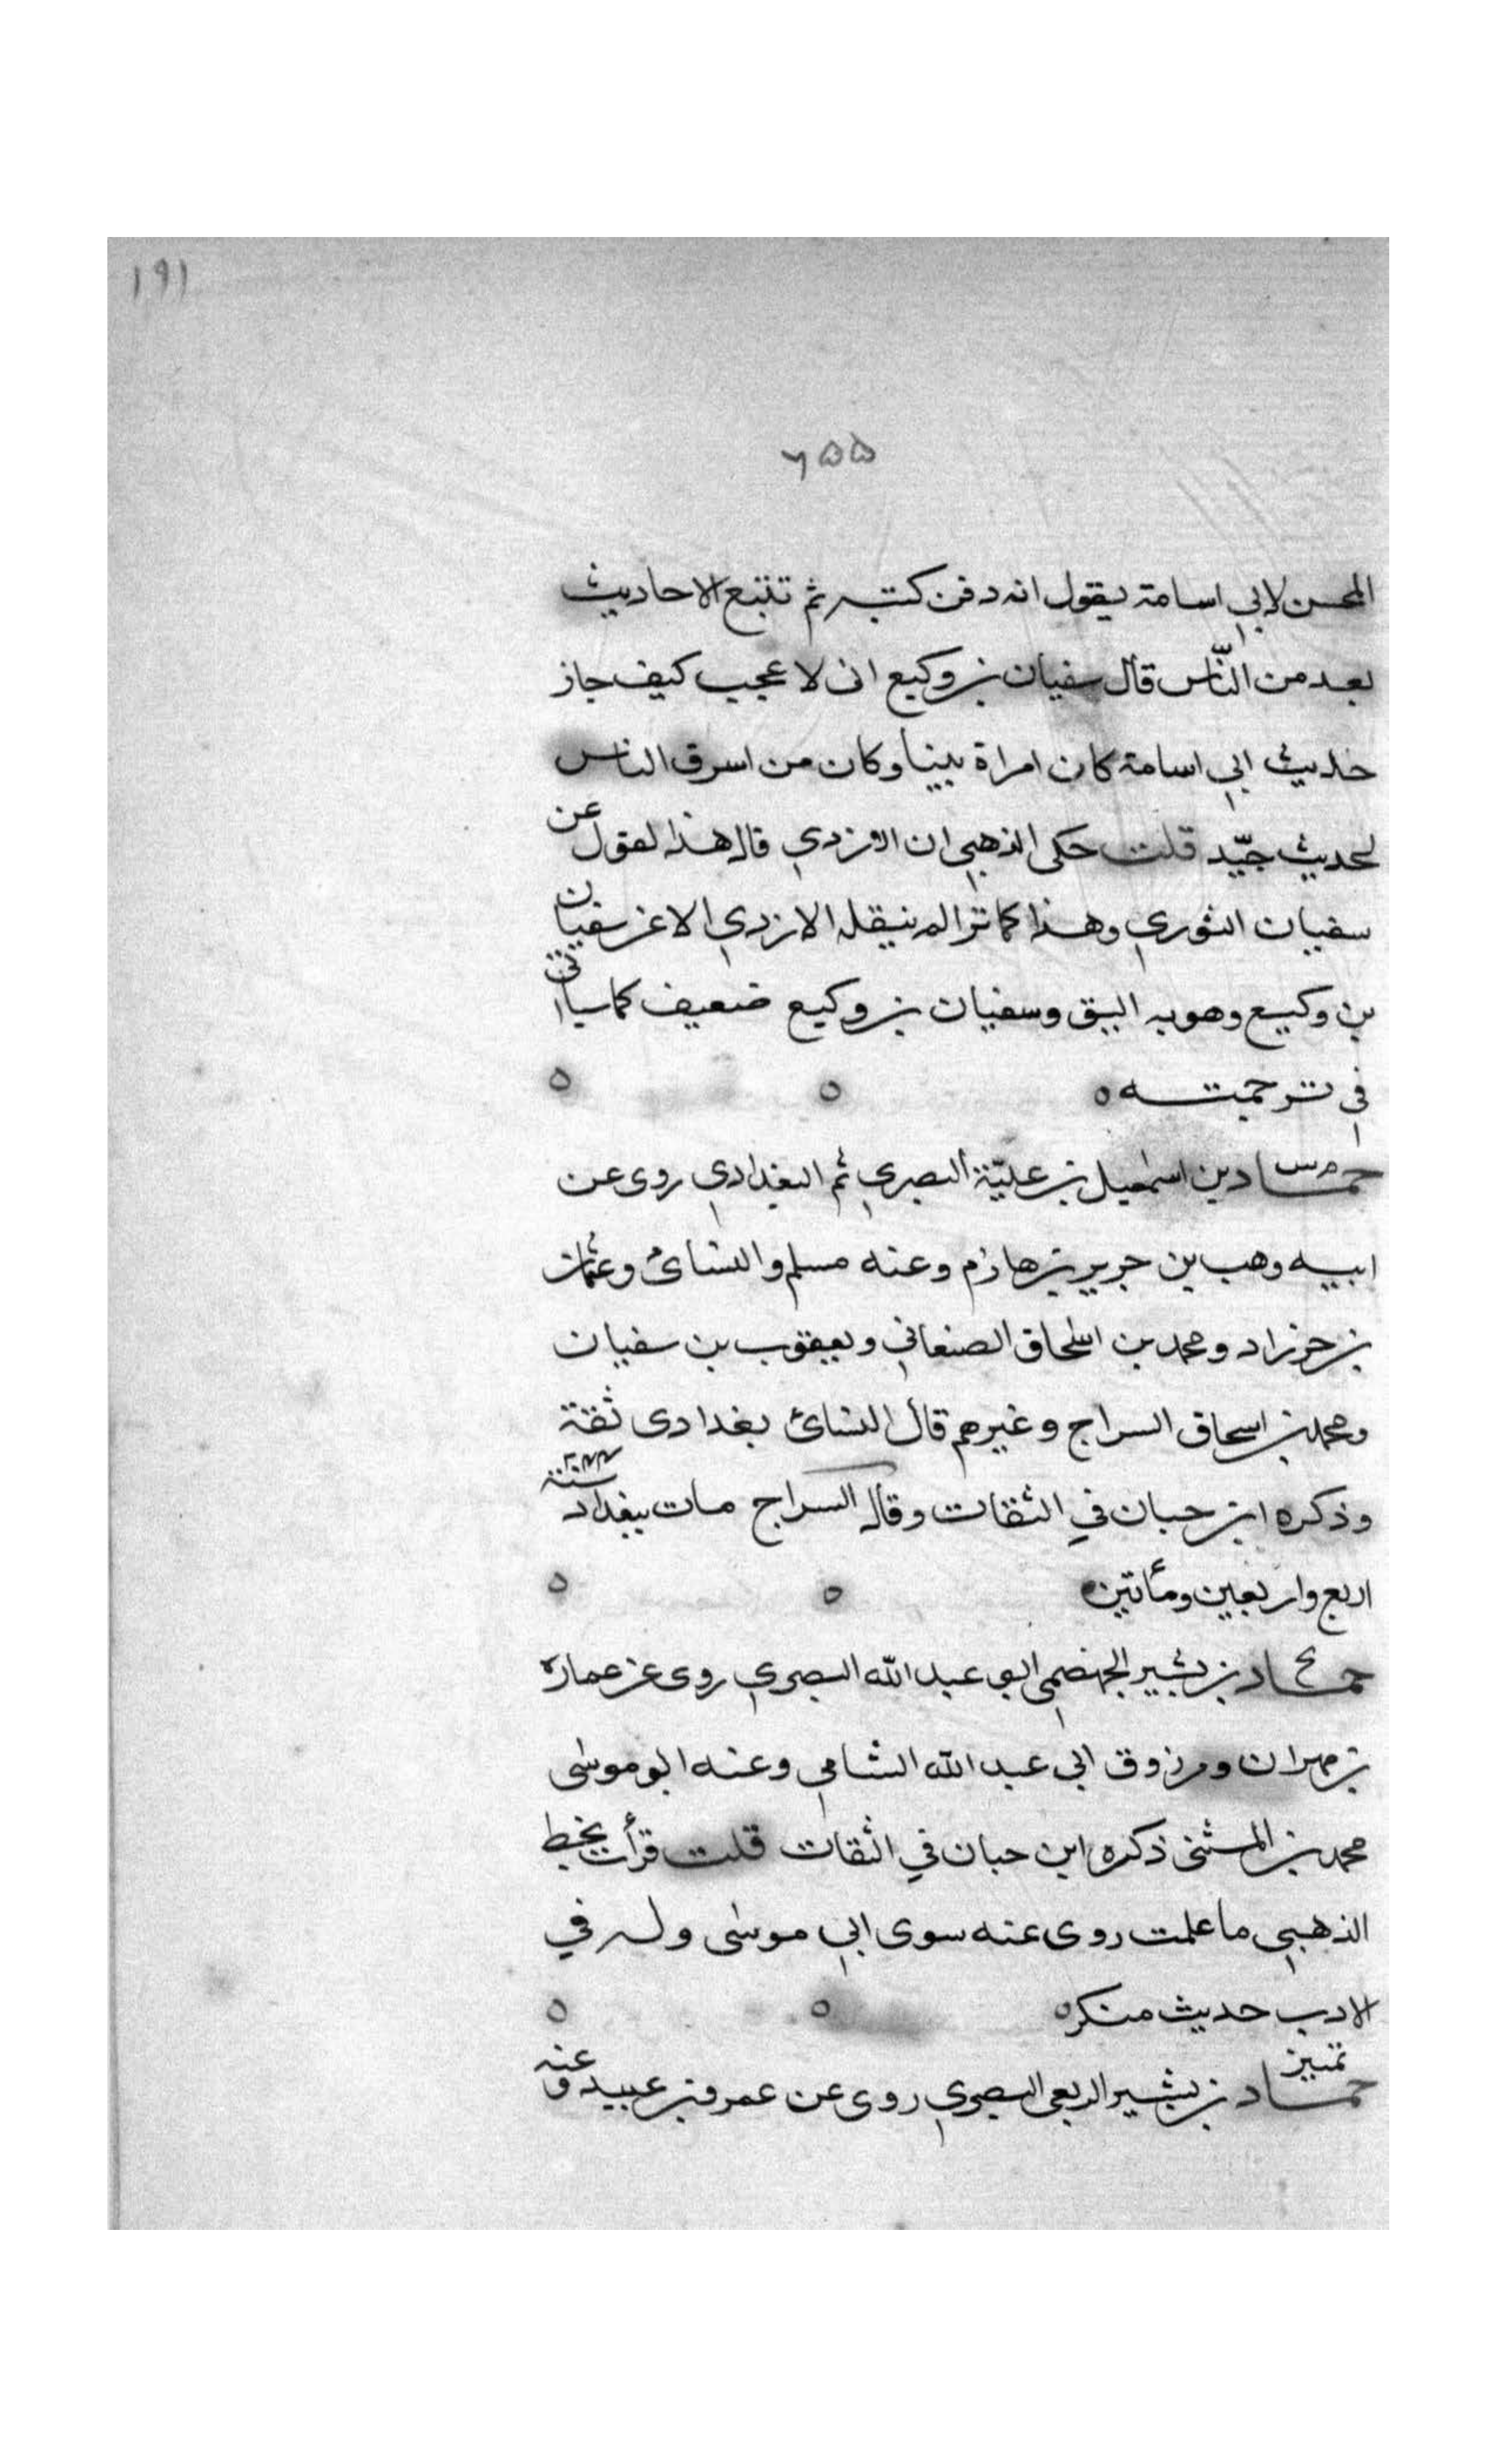 ١٩١
٦٥٥
المحسن لابي اسامة يقول انه دفن كتبه ثم تتبع الاحاديث
بعد من النّاس قال سفيان بن وكيع اني لاعجب كيف جاز
حديث ابي اسامة كان امراة بينا وكان من اسرق الناس
لحديث جيّد قلت حكى الذهبي ان الازدي قال هذا القول عن
سفيان الثوري وهذا كما ترا لم ينقله الازدي الا عن سفيان
بن وكيع وهو به اليق وسفيان بن وكيع ضعيف كما سياتي
في ترجمته ه ه ه
م س
حماد بن اسمعيل بن عليّة البصري ثم البغدادي روى عن
ابيه وهب بن جرير بن حازم وعنه مسلم والنسائ وعثمان
بن خرزاد ومحمد بن اسحاق الصنعاني ويعقوب بن سفيان
ومحمد بن اسحاق السراج وغيرهم قال النسائ بغدادى ثقة
وذكره ابن حبان في الثقات وقال السراج مات ببغداد سنة
اربع واربعين ومأتين ه ه ه
حماد بن بشير الجهضمي ابو عبد الله البصري روى عن عماره
بن مهران ومرزوق ابي عبد الله الشامي وعنه ابو موسى
محمد بن المثنى ذكره ابن حبان في الثقات قلت قرأت بخط
الذهبي ما علمت روى عنه سوى ابي موسى وله في
الادب حديث منكر ه ه ه
تمييز
حماد بن بشير الربعي البصري روى عن عمرو بن عبيد وعنه